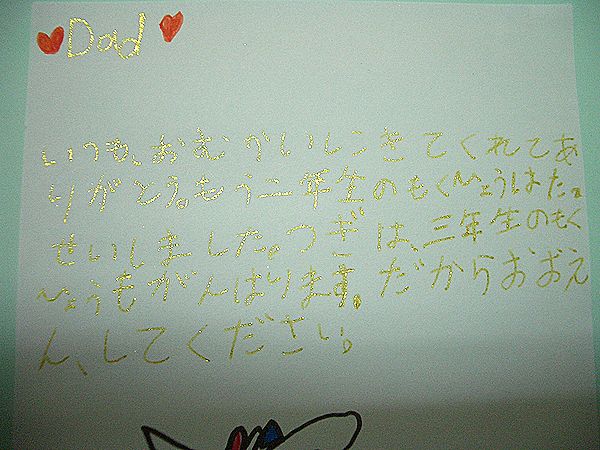 Dad
いつも、おむかいにきてくれてあ
りがとう。もう二年生のもくひょうはたっ
せいしました。つぎは、三年生のもく
ひょうもがんばります。だからおおえ
ん、してください。